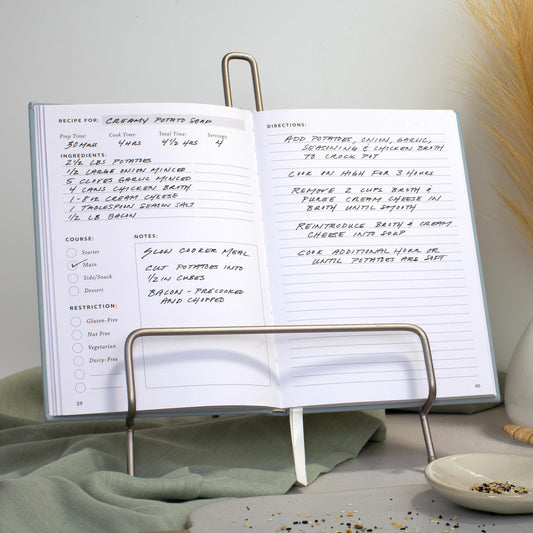 RECIPE FOR: CREAMY POTATO SOAP
Prep Time: Cook Time: Total Time: Servings:
30 MINS 4 HRS 4 1/2 HRS 4
INGREDIENTS:
2 1/2 LBS POTATOES
1/2 LARGE ONION MINCED
5 CLOVES GARLIC MINCED
4 CANS CHICKEN BROTH
1 - 8oz CREAM CHEESE
1 TABLESPOON SEASON SALT
1/2 LB BACON
COURSE:
Starter
Main
Side/Snack
Dessert
RESTRICTION:
Gluten-Free
Nut Free
Vegetarian
Dairy-Free
NOTES:
SLOW COOKER MEAL
CUT POTATOES INTO
1/2 IN CUBES
BACON - PRECOOKED
AND CHOPPED
39
DIRECTIONS:
ADD POTATOES, ONION, GARLIC,
SEASONING & CHICKEN BROTH
TO CROCK POT
COOK ON HIGH FOR 3 HOURS
REMOVE 2 CUPS BROTH &
PUREE CREAM CHEESE IN
BROTH UNTIL SMOOTH
REINTRODUCE BROTH & CREAM
CHEESE INTO SOAP
COOK ADDITIONAL HOUR OR
UNTIL POTATOES ARE SOFT
40